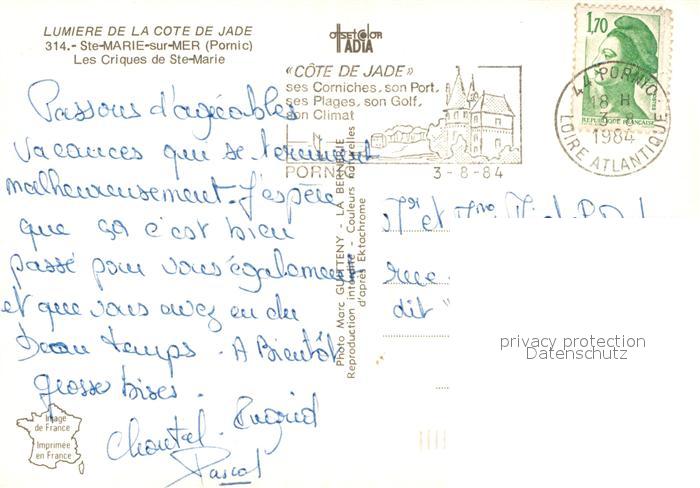 LUMIERE DE LA COTE DE JADE
314.- Ste-MARIE-sur-MER (Pornic)
Les Criques de Ste-Marie
offsetcolor
IADTA
«CÔTE DE JADE»
ses Corniches, son Port,
ses Plages, son Golf,
son Climat
PORNIC 3-8-84
1,70
REPUBLIQUE FRANÇAISE
44 PORNIC
18 H
3-8
1984
LOIRE ATLANTIQUE
Passons d'agréables
vacances qui se terminent
malheureusement. J'espère
que ça c'est bien
passé pour vous également
et que vous avez eu du
beau temps. A Bientôt
grosse bises.
Chantal. Ingrid
Pascal
Photo Marc GUITTENY - LA BERNERIE
Reproduction interdite - Couleurs naturelles
d'après Ektachrome
Mr et Mme
rue
dit "
privacy protection
Datenschutz
Image
de France
Imprimée
en France